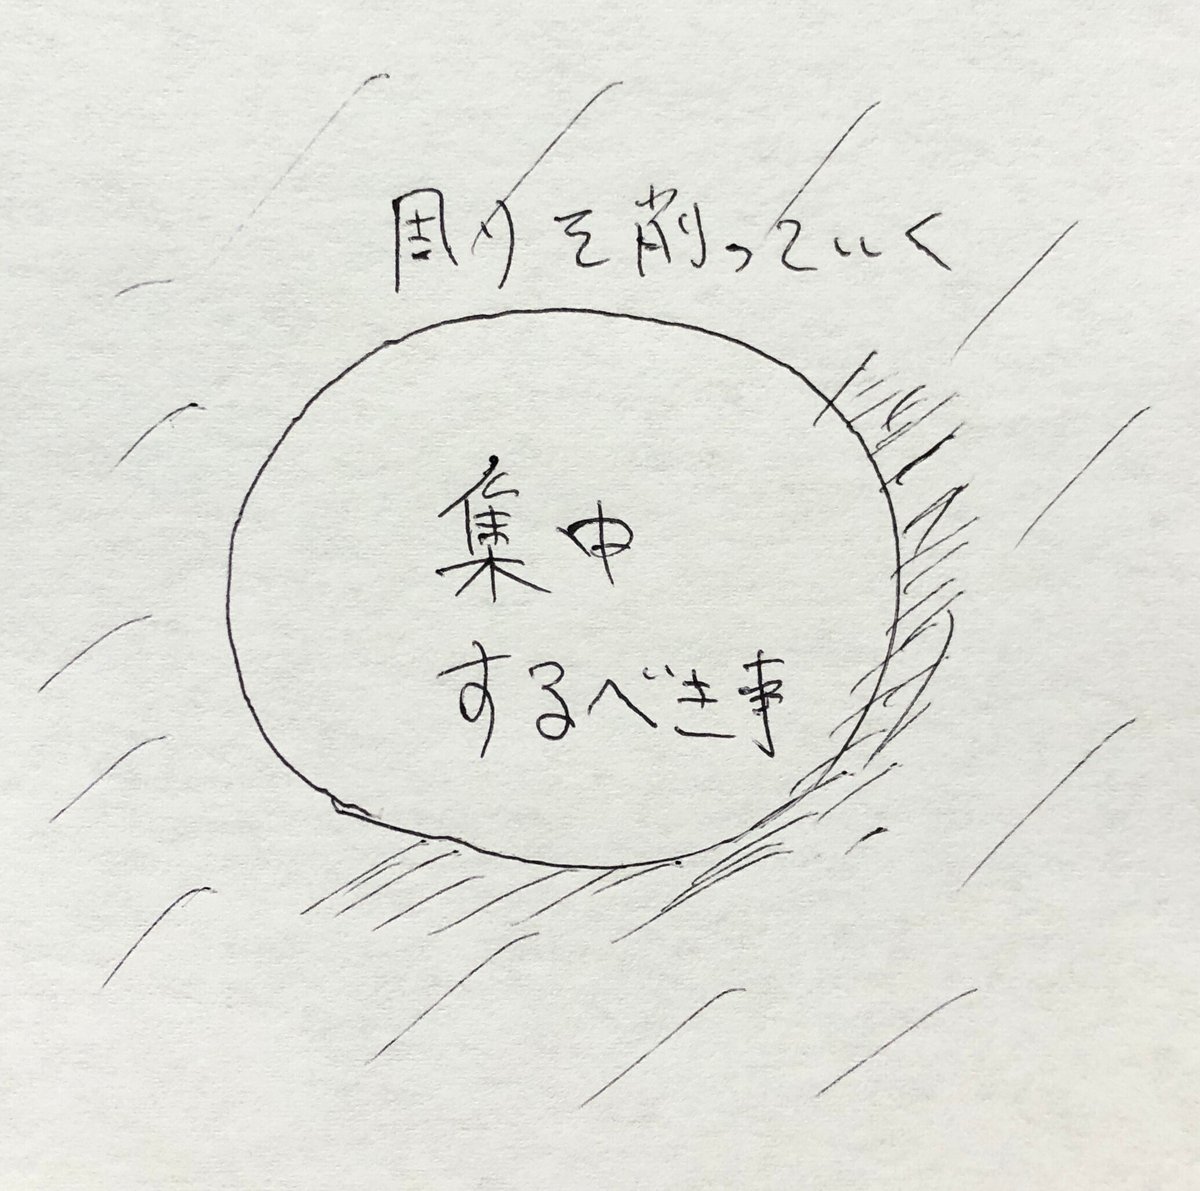 周りを削っていく
集中
するべき事